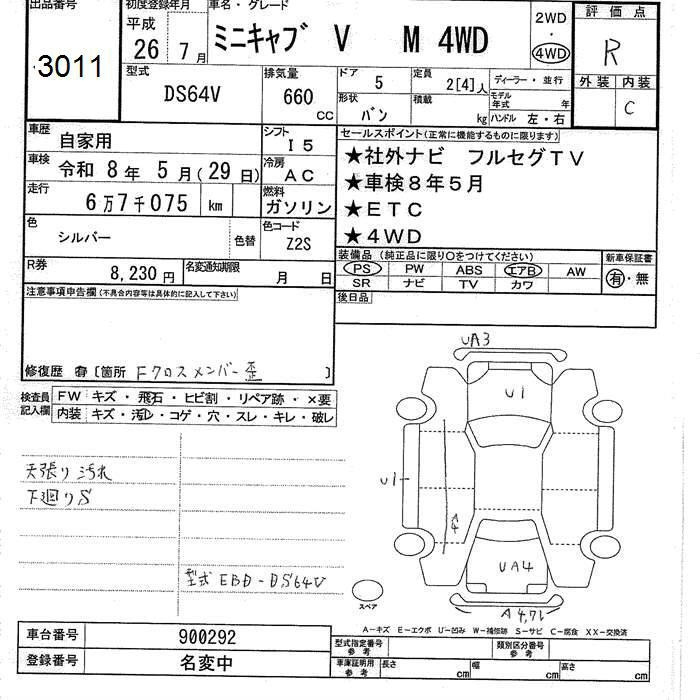 出品番号 初度登録年月 車名・グレード 2WD 評価点
3011 平成 26年 7月 ミニキャブ V M 4WD ・ 4WD R
型式 排気量 ドア 5 定員 2[4]人 ディーラー・並行 外装 内装
DS64V 660 cc 形状 バン 積載 kg モデル年式 年 ハンドル 左・右 C
車歴 自家用 シフト I5 セールスポイント(正常に機能するものに限ります)
車検 令和 8年 5月(29日) 冷房 AC ★社外ナビ フルセグTV
走行 6万7千075 km 燃料 ガソリン ★車検8年5月
★ETC
色 シルバー 色替 色コード Z2S ★4WD
R券 8,230円 名変通知期限 月 日 装備品(純正品に限り○をつけてください) 新車保証書
PS PW ABS エアB AW 有・無
SR ナビ TV カワ
注意事項申告欄(不具合内容等は具体的に記入して下さい) 後日品
修復歴 有 [箇所 Fクロスメンバー歪 ]
検査員記入欄 FW キズ・飛石・ヒビ割・リペア跡・×要
内装 キズ・汚れ・コゲ・穴・スレ・キレ・破レ
天張り汚れ
下廻りS
型式 EBD-DS64V
UA3
U1
U1
A4
UA4
A4,7L
スペア
A-キズ E-エクボ U-凹み W-補修跡 S-サビ C-腐食 XX-交換済
車台番号 900292 型式指定番号 参考 類別区分番号 参考
登録番号 名変中 車庫証明用 参考 長さ cm 幅 cm 高さ cm